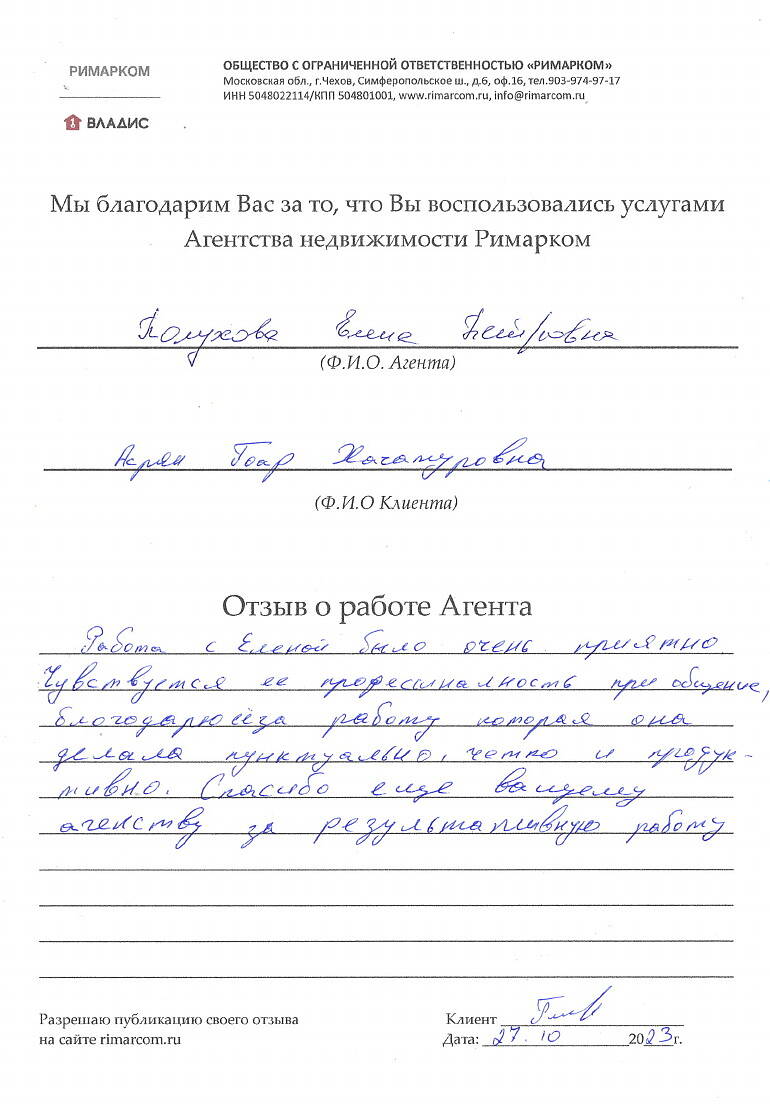 РИМАРКОМ
ОБЩЕСТВО С ОГРАНИЧЕННОЙ ОТВЕТСТВЕННОСТЬЮ «РИМАРКОМ»
Московская обл., г.Чехов, Симферопольское ш., д.6, оф.16, тел.903-974-97-17
ИНН 5048022114/КПП 504801001, www.rimarcom.ru, info@rimarcom.ru
ВЛАДИС
Мы благодарим Вас за то, что Вы воспользовались услугами
Агентства недвижимости Римарком
Полухова Елена Петровна
(Ф.И.О. Агента)
Асрян Гоар Хачатуровна
(Ф.И.О Клиента)
Отзыв о работе Агента
Работа с Еленой было очень приятно.
Чувствуется ее профессиналность при общение,
благодарю за работу которая она
делала пунктуально, четко и продук-
тивно. Спасибо еще вашему
агенству за результативную работу
Разрешаю публикацию своего отзыва
на сайте rimarcom.ru
Клиент
Дата: 27.10 2023г.